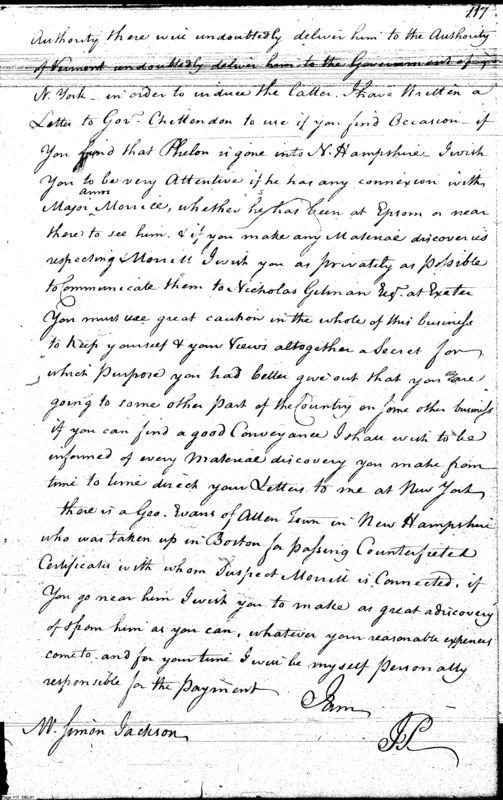 117
Authority there will undoubtedly deliver him to the Authority
of Vermont undoubtedly deliver him to the Government of
N. York - in order to induce the latter. I have written a
Letter to Govr. Chettendon to use if you find Occasion - if
You find that Phelon is gone into N. Hampshire - I wish
You to be very Attentive if he has any connexion with
Major Amos Morrill, whether he has been at Epsom or near
there to see him. & if you make any Material discoveries
respecting Morrill I wish you as privately as possible
to Communicate them to Nicholas Gilman Esqr. at Exeter
You must use great caution in the whole of this business
to keep yourself & your Views altogether a Secret for
which Purpose you had better give out that you are
going to some other Part of the Country on some other business
if you can find a good Conveyance I shall wish to be
informed of every Material discovery you make from
time to time direct your Letters to me at New York
there is a Geo. Evans of Allen Town in New Hampshire
who was taken up in Boston for passing Counterfeited
Certificates with whom I suspect Morrill is Connected, if
You go near him I wish you to make as great a discovery
of from him as you can, whatever your reasonable expences
come to and for your time I will be myself Personally
responsible for the Payment
I am
Mr. Simon Jackson
Page 117 DEL01